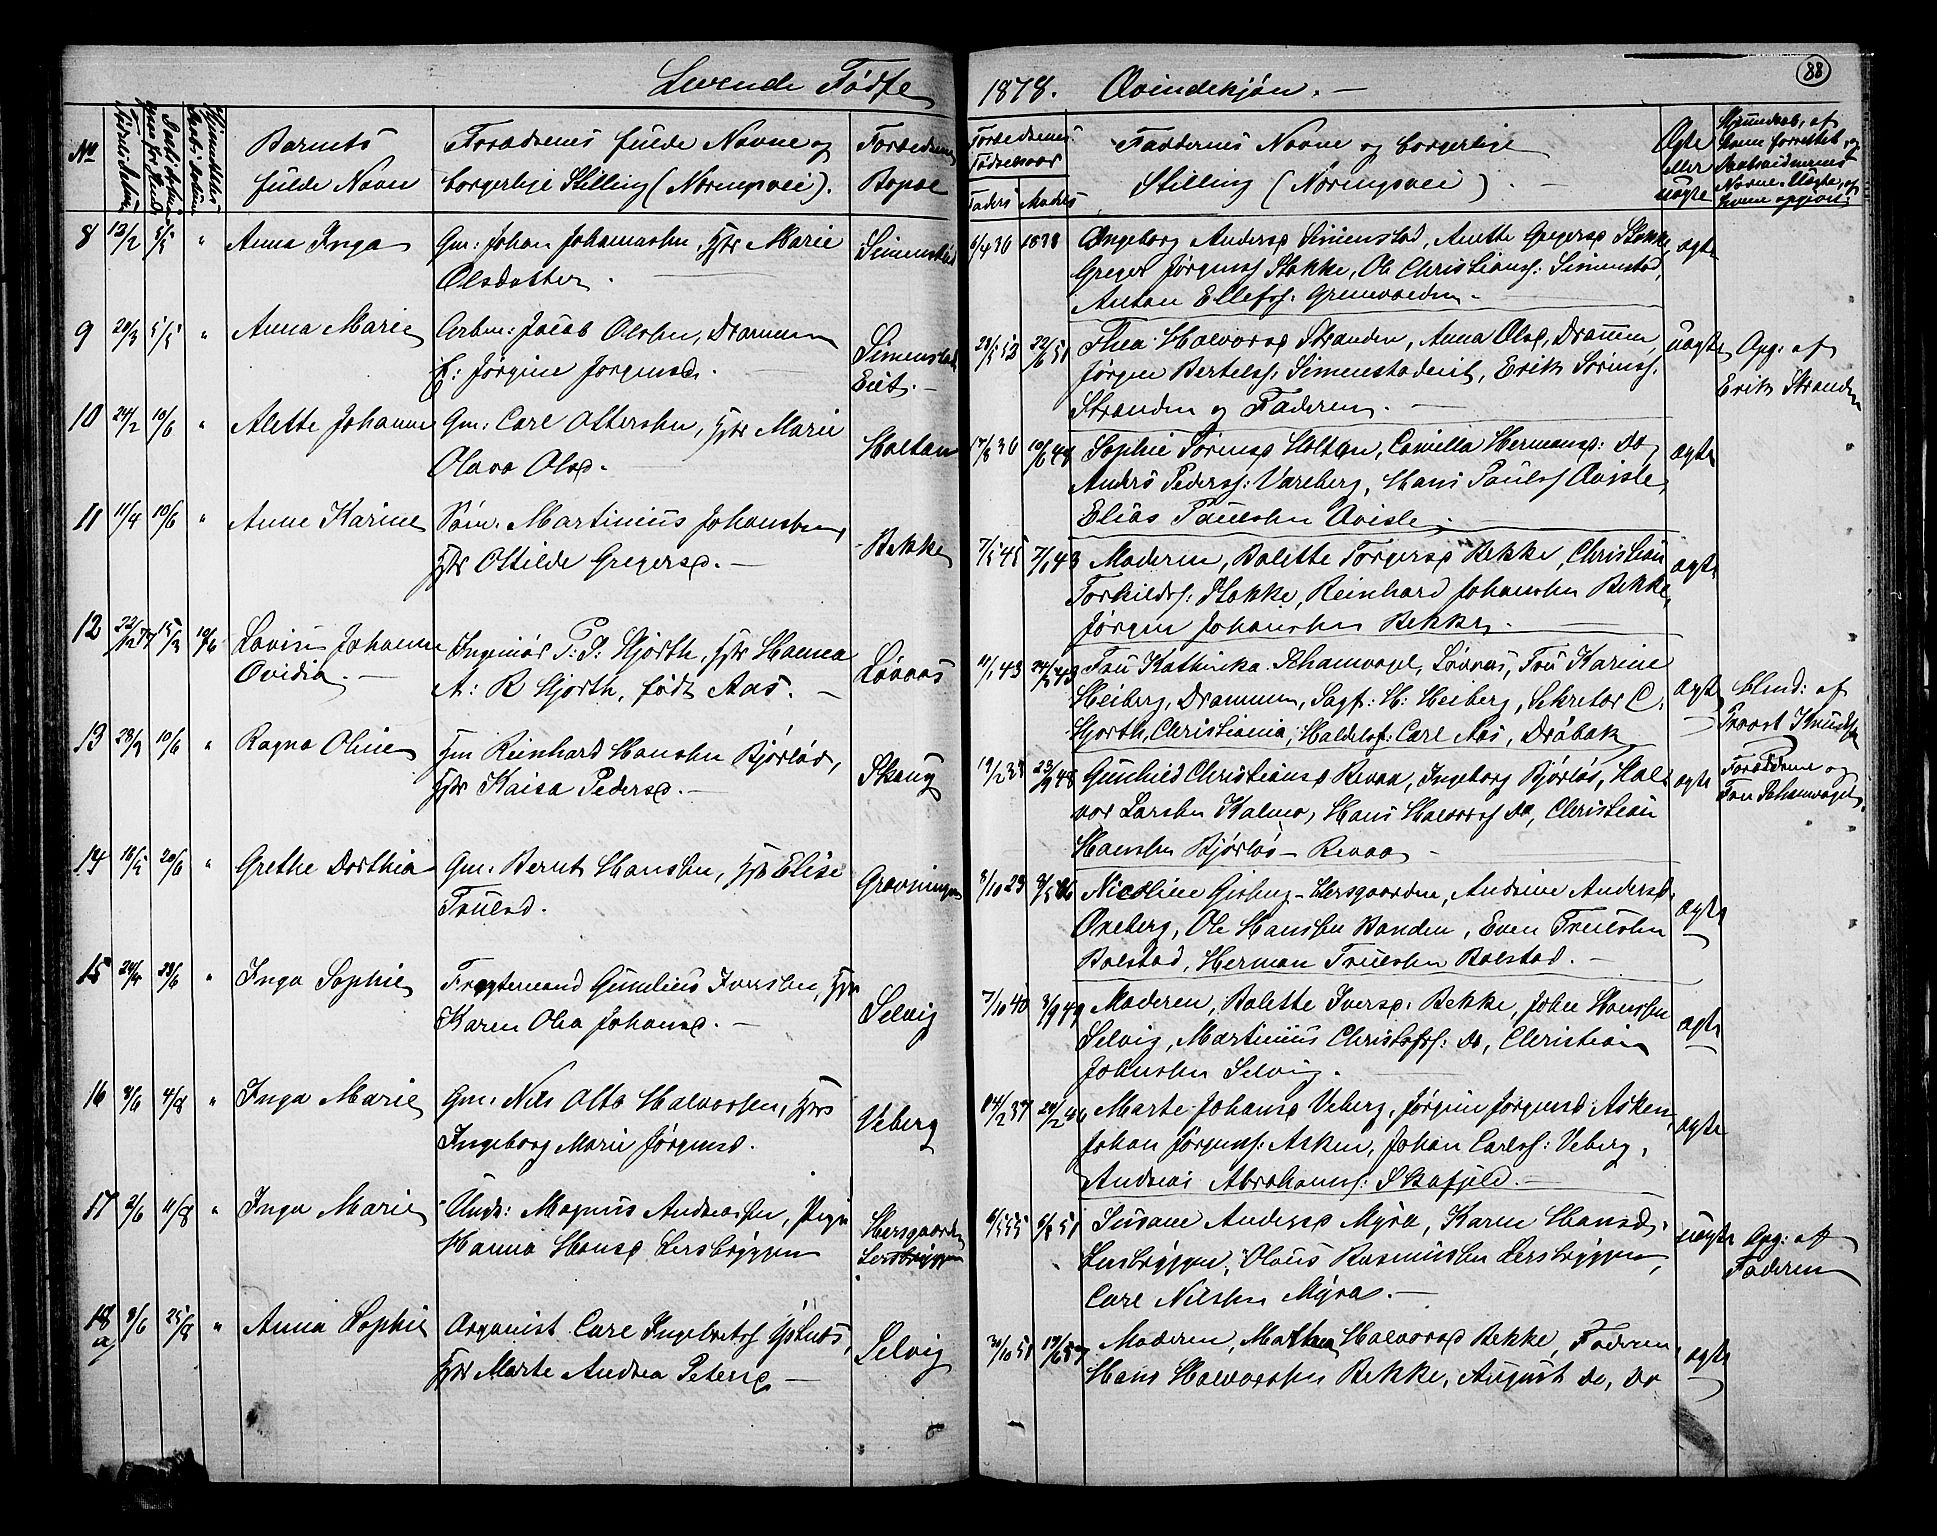 Levende Fødte 1878. Qvindekjøn. —
88
No
Barnets fulde Navn
Forældrenes fulde Navne og borgerlige Stilling (Næringsvei).
Forældrenes Bopæl
Forældrenes Fødselsaar
Faders Moders
Faddernes Navne og borgerlige Stilling (Næringsvei). —
Ægte eller uægte
8 12/2 5/5 " Anna Inga
Gm: Johan Johannesen, Hst Marie
Olsdatter.
Simenstad
6/4 30 1838
Ingeborg Andersd Simenstad, Anette Gregersd Stokke,
Greger Jørgenss Stokke, Ole Christianss: Simenstad,
Anton Ellefss:
ægte
9 20/3 5/5 " Anna Marie
Arbm: Jacob Olsen, Drammen
P: Jørgine Jørgensd. —
Simenstad
Eiet. —
28/5 52 22/6 51
Thea Halvorsd Stranden, Anna Olsd, Drammen,
Jørgen Bertelss: Simenstadeiet, Erik Sørenss:
Stranden og Faderen. —
uægte
Opg: af
Erik Stranden
10 24/2 10/6 " Alette Johanne
Gm: Carl Ottersen, Hst Marie
Olava Olsd. —
Holtan
17/8 36 10/6 48
Sophie Sørensd Holtan, Camilla Hermansd: Do
Anders Pederss: Vareberg, Hans Paulss Qvisle,
Elias Paulsen Qvisle,
ægte
11 11/4 10/6 " Anne Karine
Søm. Martinius Johansen,
Hst Ottilde Gregersd. —
Bekke
7/5 45 7/1 43
Moderen, Balette Torgersd Bekke, Christian
Torkildss: Stokke, Reinhard Johansen Bekke,
Jørgen Johansen Bekke. —
ægte
12 22/12 77 15/3 10/6 Lovise Johanne
Ovidia. —
Ingeniør P. P. Hjorth, Hst Hanna
A: R Hjorth, født Aas. —
Løvnæs
11/1 43 24/5 43
Fru Kathinka Schamvogel, Løvnæs, Fru Karine
Heiberg, Drammen, Sagf: H: Heiberg, Sekretær C.
Hjorth, Christiania, Handelsf: Carl Aas, Drøbak
ægte
Provst Knudsen
Forældrene og
Fru Schamvogel.
13 23/3 10/6 " Ragna Oline
Hm Reinhard Hansen Bjørløs,
Hst Kaisa Pedersd. —
Skaug
19/2 33 23/9 48
Gunhild Christiansd Revaa, Ingeborg Bjørløs, Hal-
vor Larsen Kalmo, Hans Halvorss Do, Christian
Hansen Bjørløs — Revaa —
ægte
14 16/5 20/6 " Grethe Dorthia
Gm. Bernt Hansen, Hst Elise
Truelsd.
Gravningen
8/10 23 8/5 36
Nicoline Hersgaarden, Andrine Andersd
Oreberg, Ole Hansen Banden, Even Truelsen
Bolstad, Herman Truelsen Bolstad. —
ægte
15 24/4 23/6 " Inga Sophie
Fragtemand Gunelius Iversen, Hst
Karen Olea Johansd. —
Selvig
7/10 40 3/9 49
Moderen, Balette Iversd: Bekke, Johan Hanssen
Selvig, Martinius Christofss: Do, Christian
Johansen Selvig.
ægte
16 3/6 4/8 " Inga Marie
Gm. Nils Otto Halvorsen, Hst
Ingeborg Marie Jørgensd.
Veberg
24/2 37 20/2 46
Marte Johansd Veberg, Jørgine Jørgensd Asken,
Johan Jørgenss: Asken, Johan Carlss: Veberg,
Andreas Abrahamss: Skafjeld. —
ægte
17 2/6 11/8 " Inga Marie
Unk: Magnus Andreassen, Pige
Hanna Hansd Lersbryggen
Hersgaarden
Lersbryggen
6/5 55 6/8 51
Susane Andersd Myra, Karen Hansd,
Lersbryggen, Olaus Rasmussen Lersbryggen,
Carl Nilsen Myra. —
uægte
Opg: af
Faderen
18 a) 3/6 25/8 " Anna Sophie
Organist Carl Ingebretss
Hst Marte Andrea Petersd —
Selvig
30/10 51 19/6 57
Moderen, Mathea Halvorsd Bekke, Faderen,
Hans Halvorsen Bekke, August Do, Do
ægte